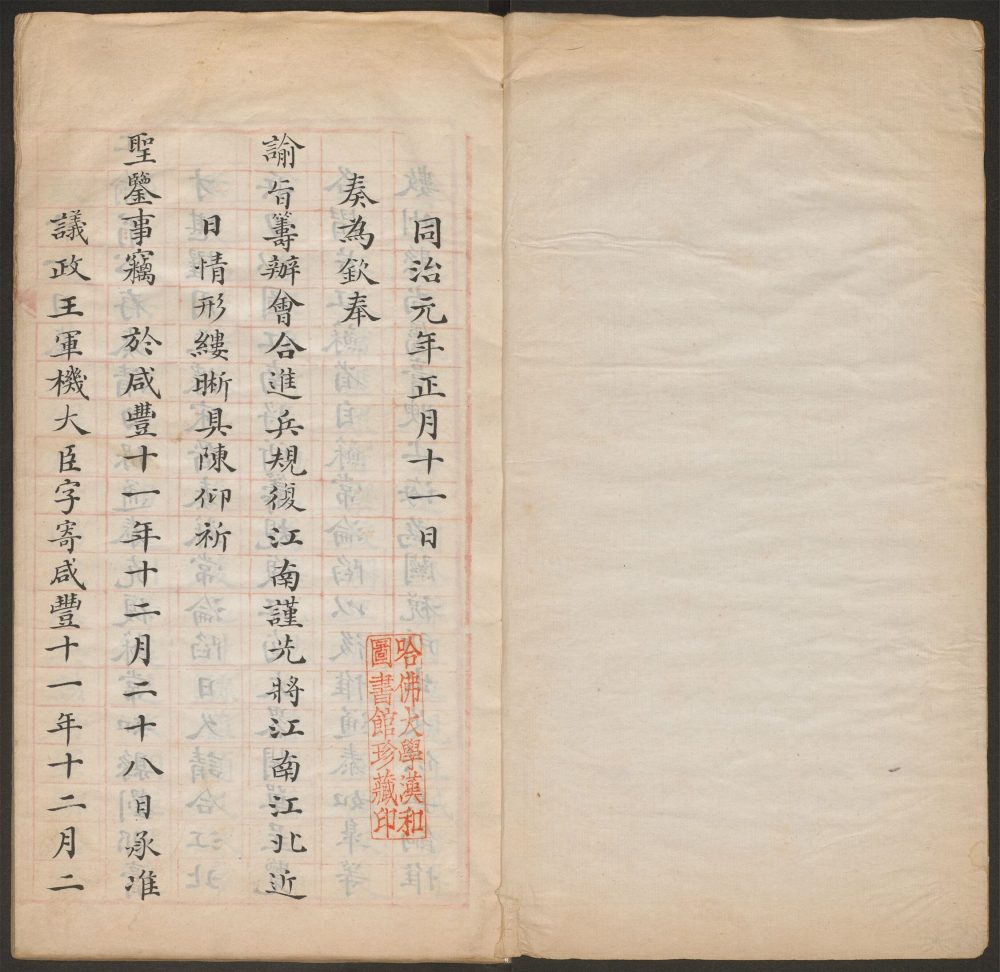 同治元年正月十一日
奏為欽奉
諭旨籌辦會合進兵規復江南謹先將江南江北近
日情形縷晰具陳仰祈
聖鑒事竊 於咸豐十一年十二月二十八日承准
議政王軍機大臣字寄咸豐十一年十二月二
哈佛大學漢和
圖書館珍藏印